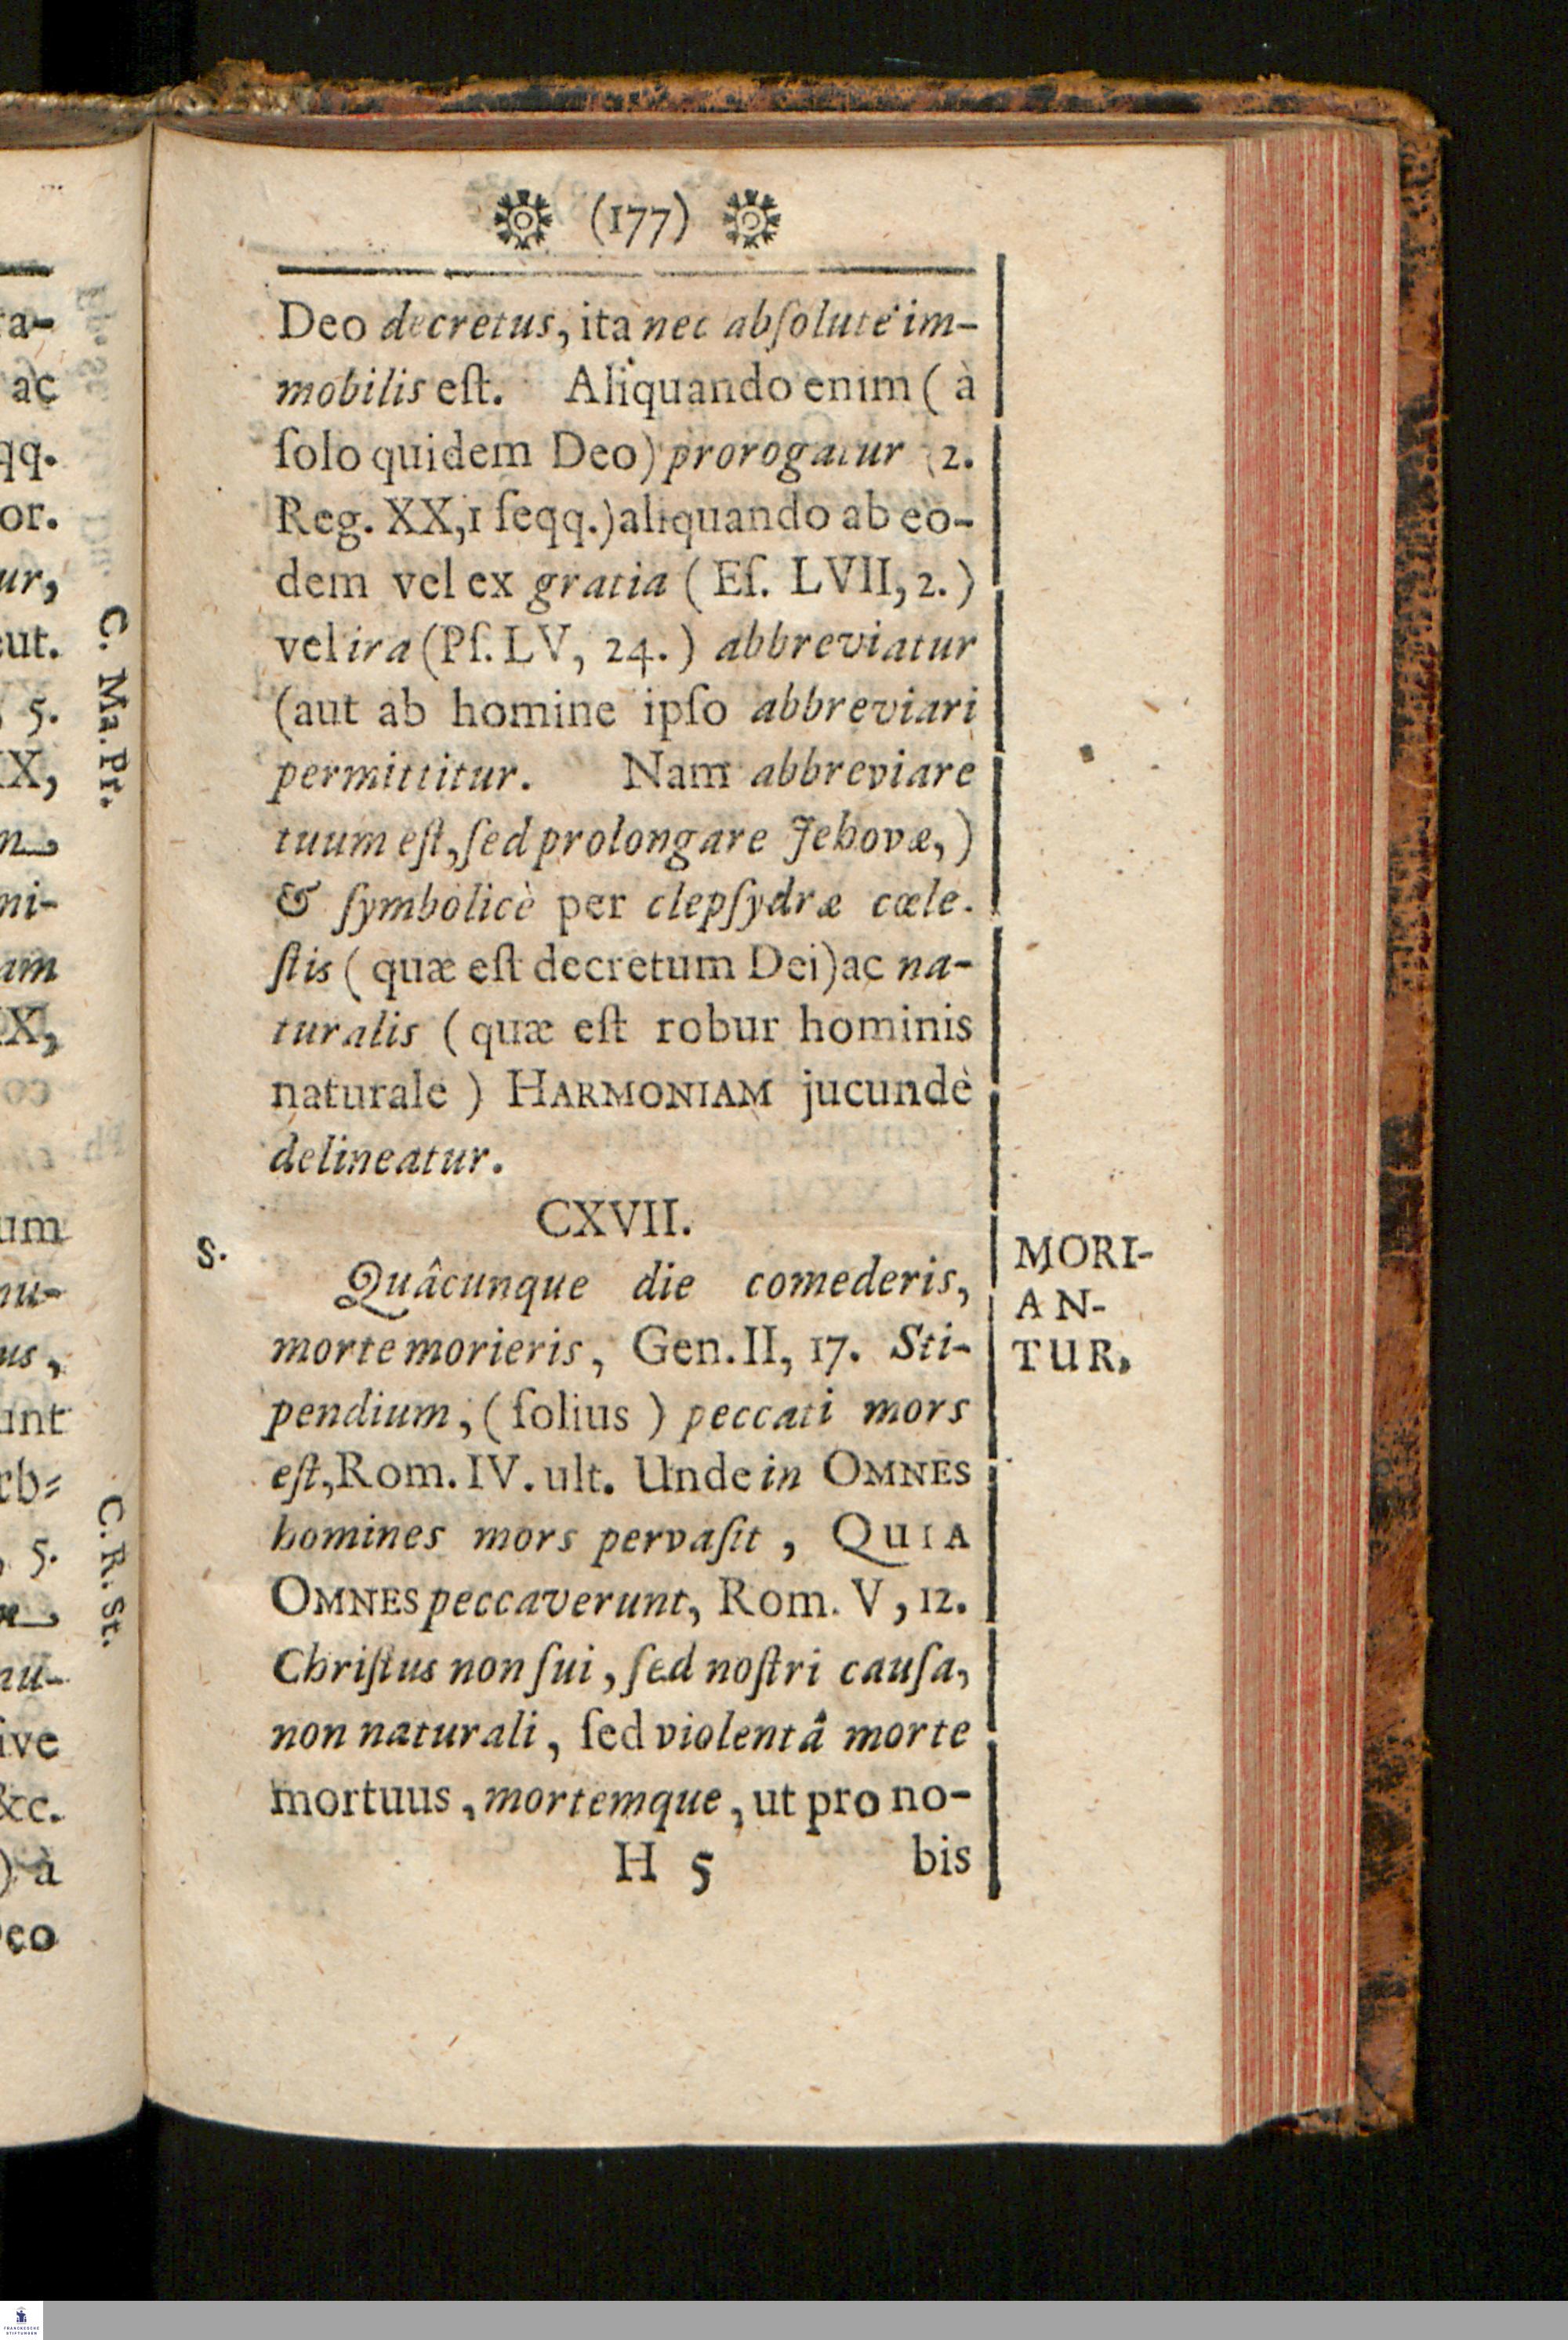 (177)
Deo decretus, ita nec absolutè im-
mobilis eſt. Aliquando enim ( à
ſolo quidem Deo) prorogatur (2.
Reg. XX,1 ſeqq.) aliquando ab eo-
dem vel ex gratia ( Eſ. LVII, 2.)
vel ira (Pſ. LV, 24.) abbreviatur
(aut ab homine ipſo abbreviari
permittitur. Nam abbreviare
tuum eſt, ſed prolongare Jehovæ,)
& ſymbolicè per clepſydræ cœle-
ſtis ( quæ eſt decretum Dei) ac na-
turalis ( quæ eſt robur hominis
naturale ) HARMONIAM jucundè
delineatur.
CXVII.
S.
Quâcunque die comederis,
morte morieris, Gen. II, 17. Sti-
pendium, ( ſolius ) peccati mors
eſt, Rom. IV. ult. Unde in OMNES
homines mors pervaſit, QUIA
OMNES peccaverunt, Rom. V, 12.
Chriſtus non ſui, ſed noſtri cauſa,
non naturali, ſed violentâ morte
mortuus, mortemque, ut pro no-
H 5 bis
MORI-
AN-
TUR,
ra-
ac
qq.
or.
ur,
eut.
, 5.
IX,
ni-
am
IX,
um
nu-
us,
unt
rb=
, 5.
nu-
ive
&c.
) à
Deo
C. Ma. Pr.
C. R. St.
FRANCKESCHE
STIFTUNGEN